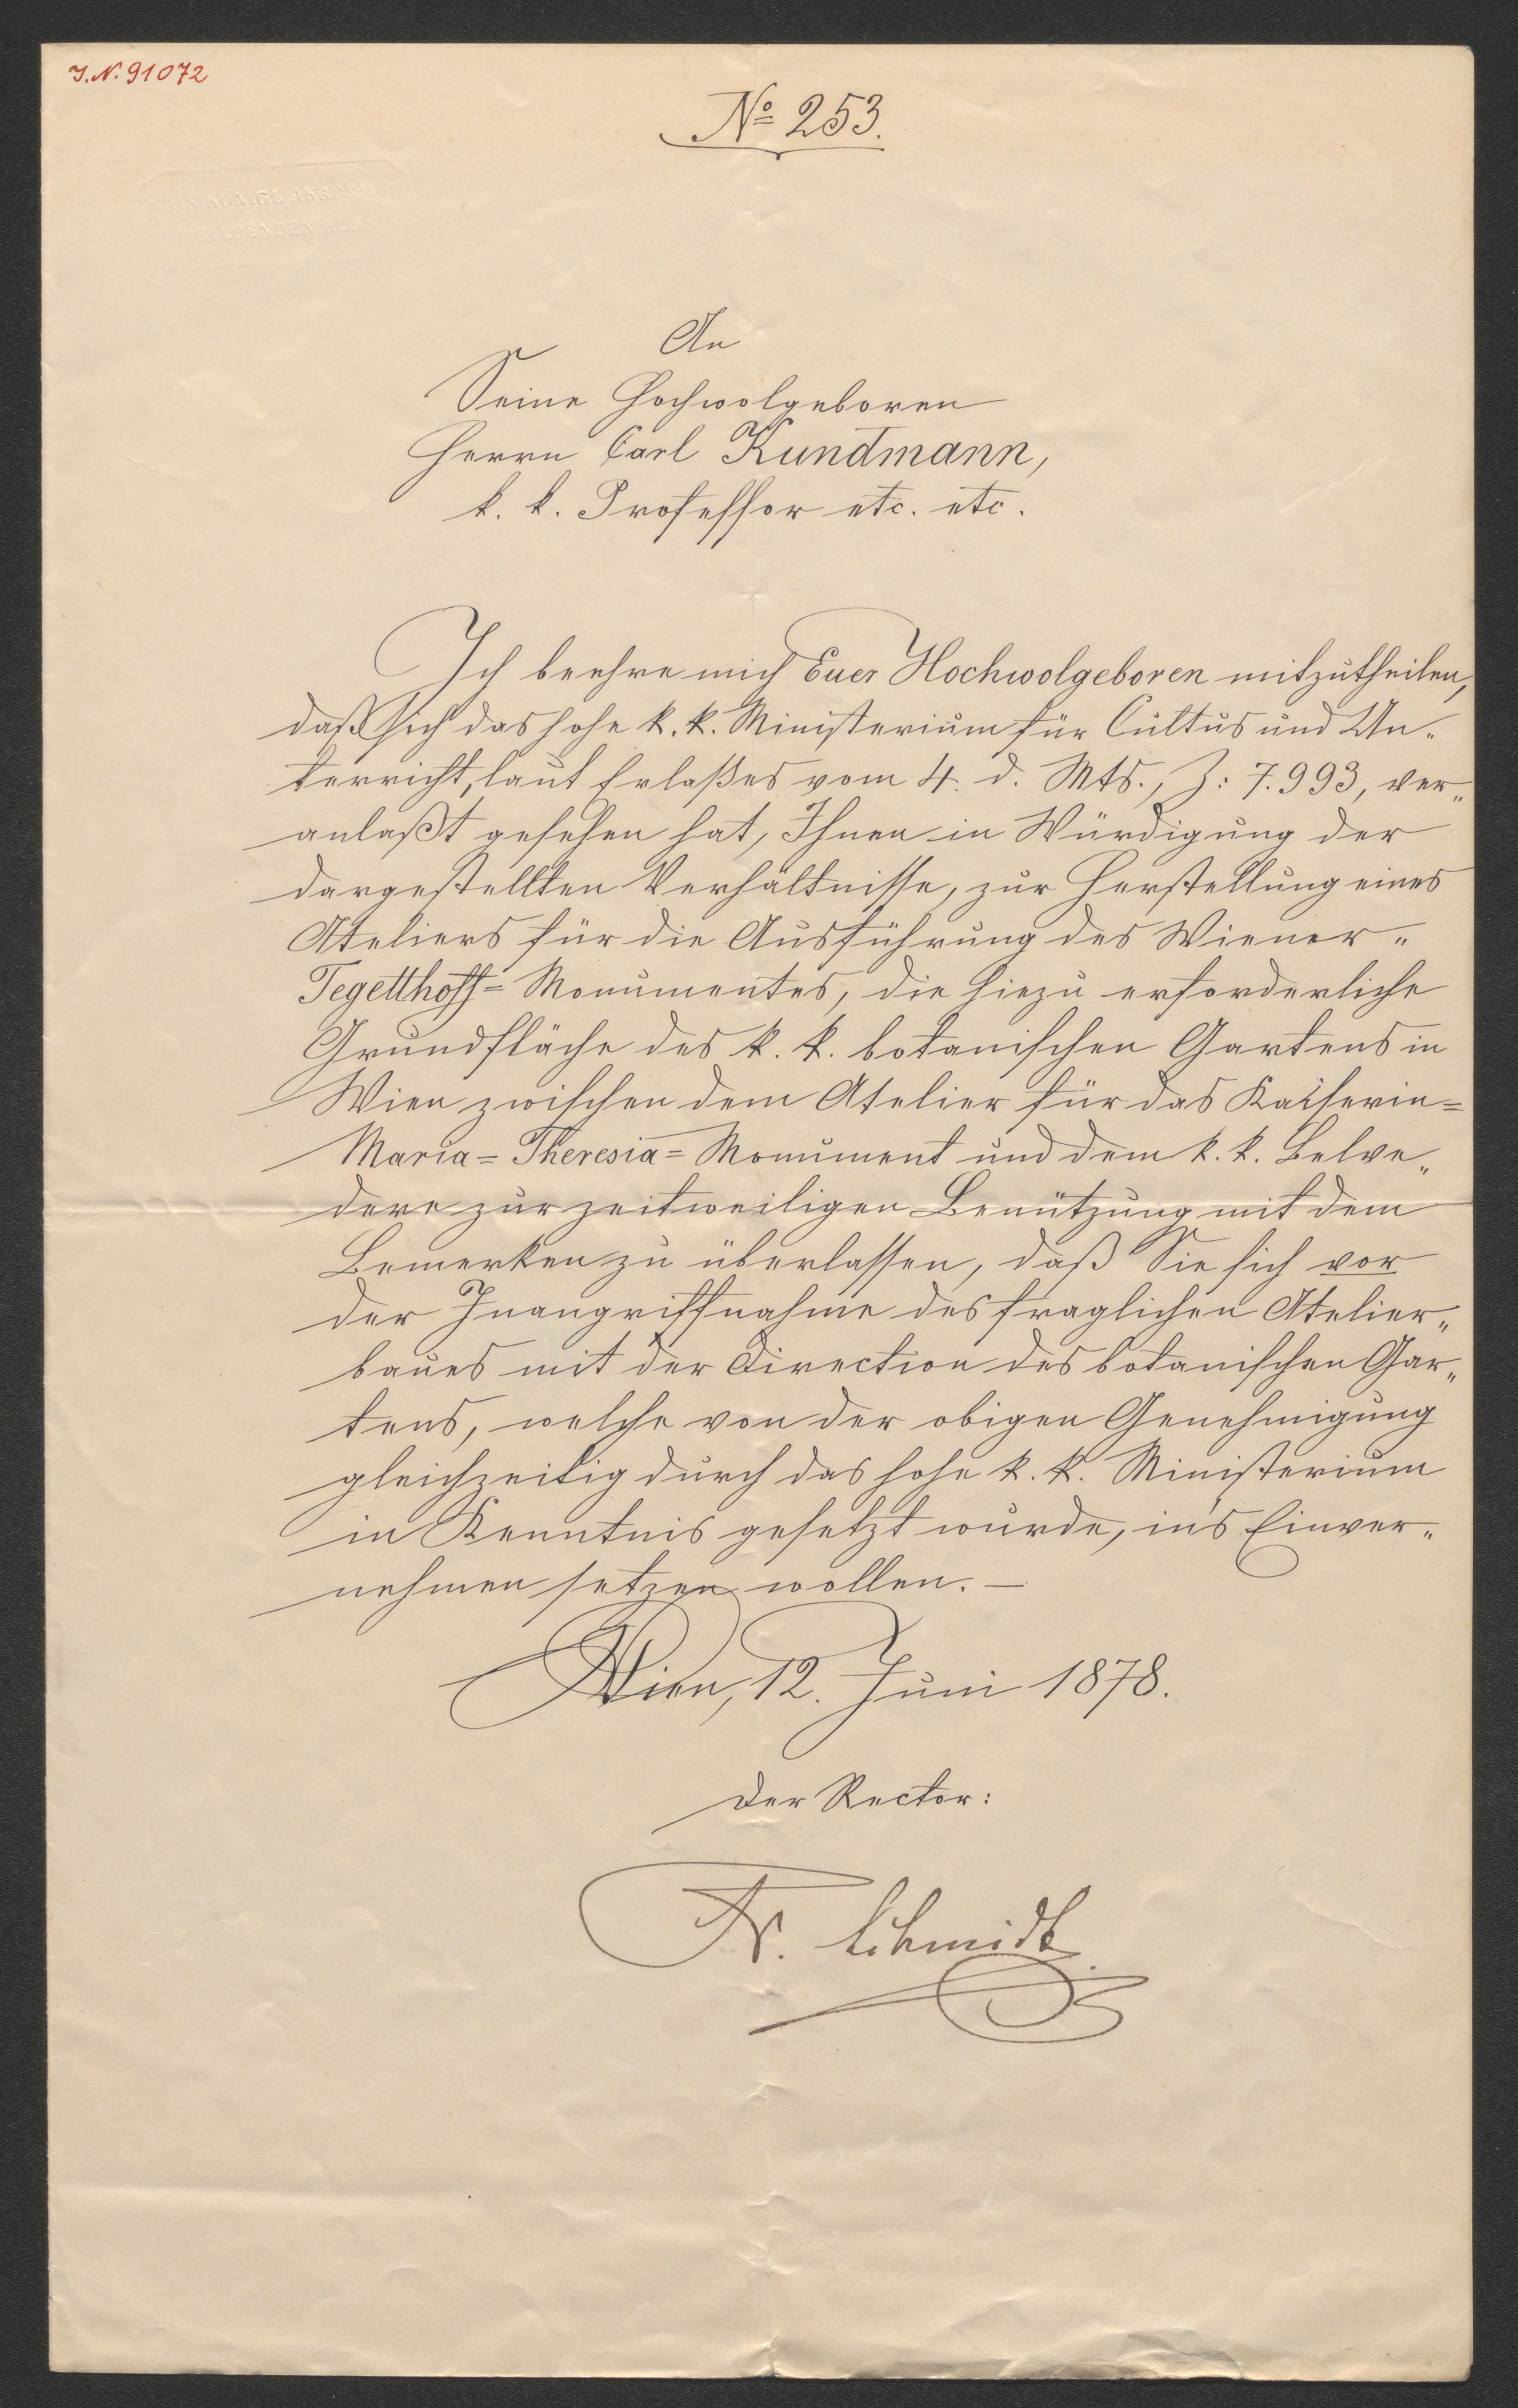 J.N. 91072
Nº 253.
An
Seine Hochwolgeboren
Herrn Carl Kundmann,
k. k. Professor etc. etc.
Ich beehre mich Euer Hochwolgeboren mitzutheilen,
daß sich das hohe k. k. Ministerium für Cultus und Un„
terricht, laut Erlaßes vom 4. d. Mts., Z: 7.993, ver„
anlaßt gesehen hat, Ihnen in Würdigung der
dargestellten Verhältnisse, zur Herstellung eines
Ateliers für die Ausführung des Wiener„
Tegetthoff= Monumentes, die hiezu erforderliche
Grundfläche des k. k. botanischen Gartens in
Wien zwischen dem Atelier für das Kaiserin=
Maria= Theresia= Monument und dem k. k. Belve„
dere zur zeitweiligen Benützung mit dem
Bemerken zu überlassen, daß Sie sich vor
der Inangriffnahme des fraglichen Atelier„
baues mit der Direction des botanischen Gar„
tens, welche von der obigen Genehmigung
gleichzeitig durch das hohe k. k. Ministerium
in Kenntnis gesetzt wurde, in's Einver„
nehmen setzen wollen. —
Wien, 12. Juni 1878.
Der Rector:
Fr. Schmidt